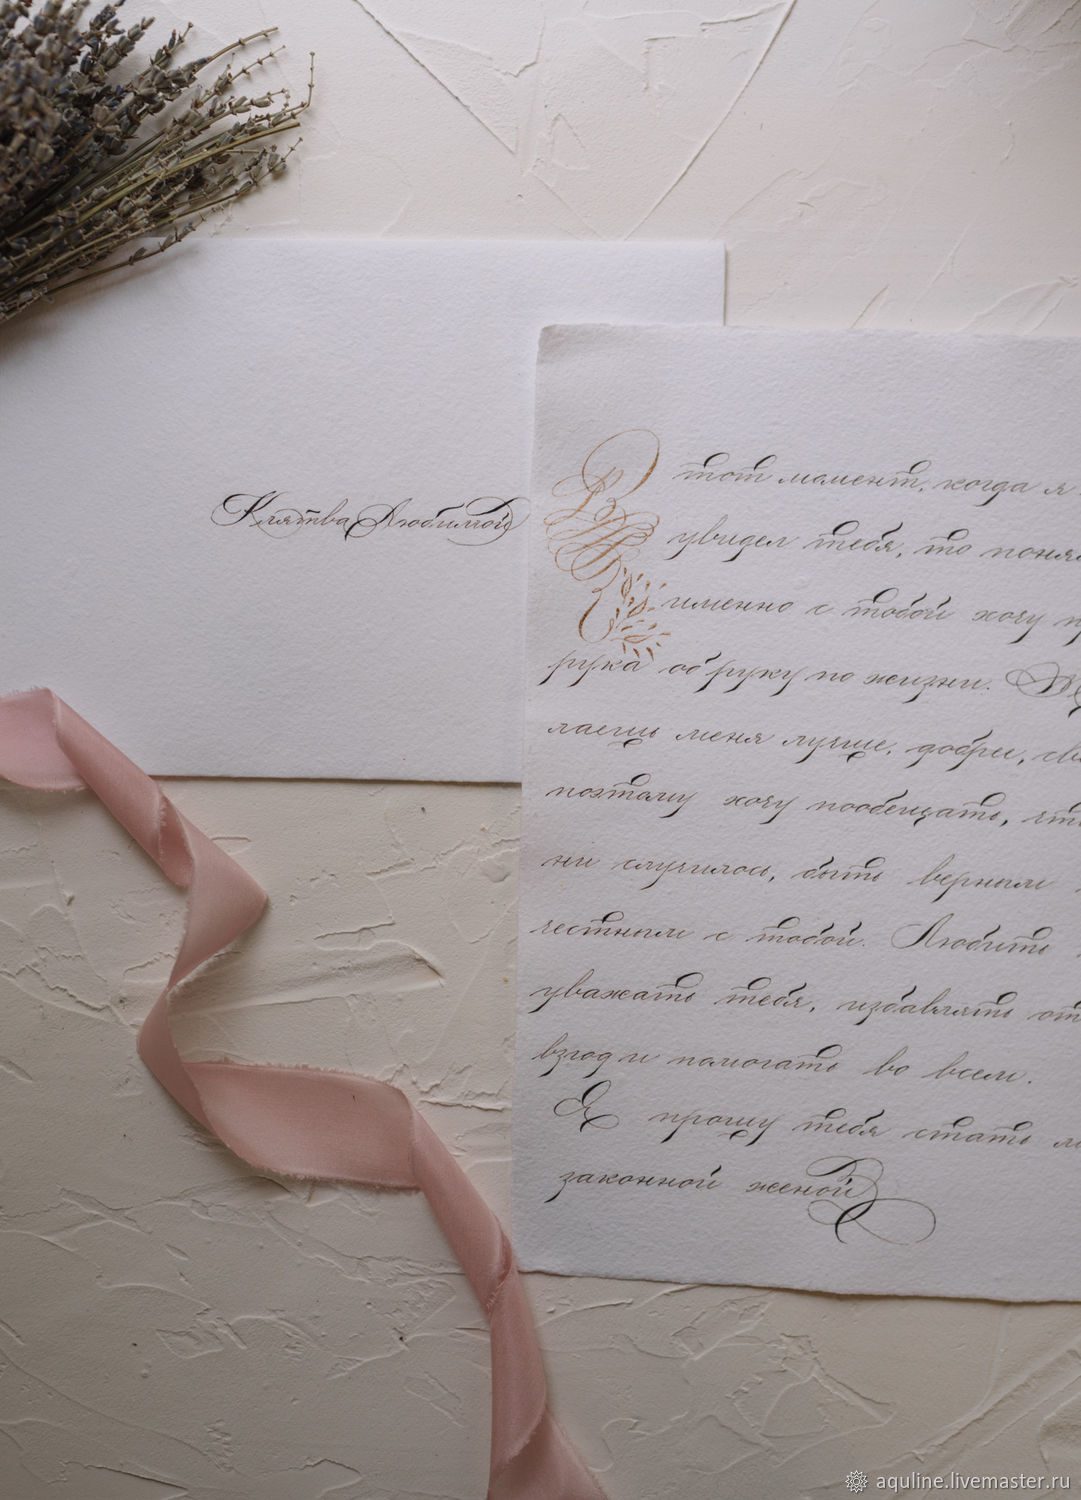 Клятва Любимой
В тот момент, когда я
увидел тебя, то понял
именно с тобой хочу
рука об руку по жизни.
лаешь меня лучше, добрее,
поэтому хочу пообещать,
ни случилось, быть верным
честным с тобой. Любить
уважать тебя, избавлять от
взгод и помогать во всем.
Я прошу тебя стать
законной женой
aquline.livemaster.ru